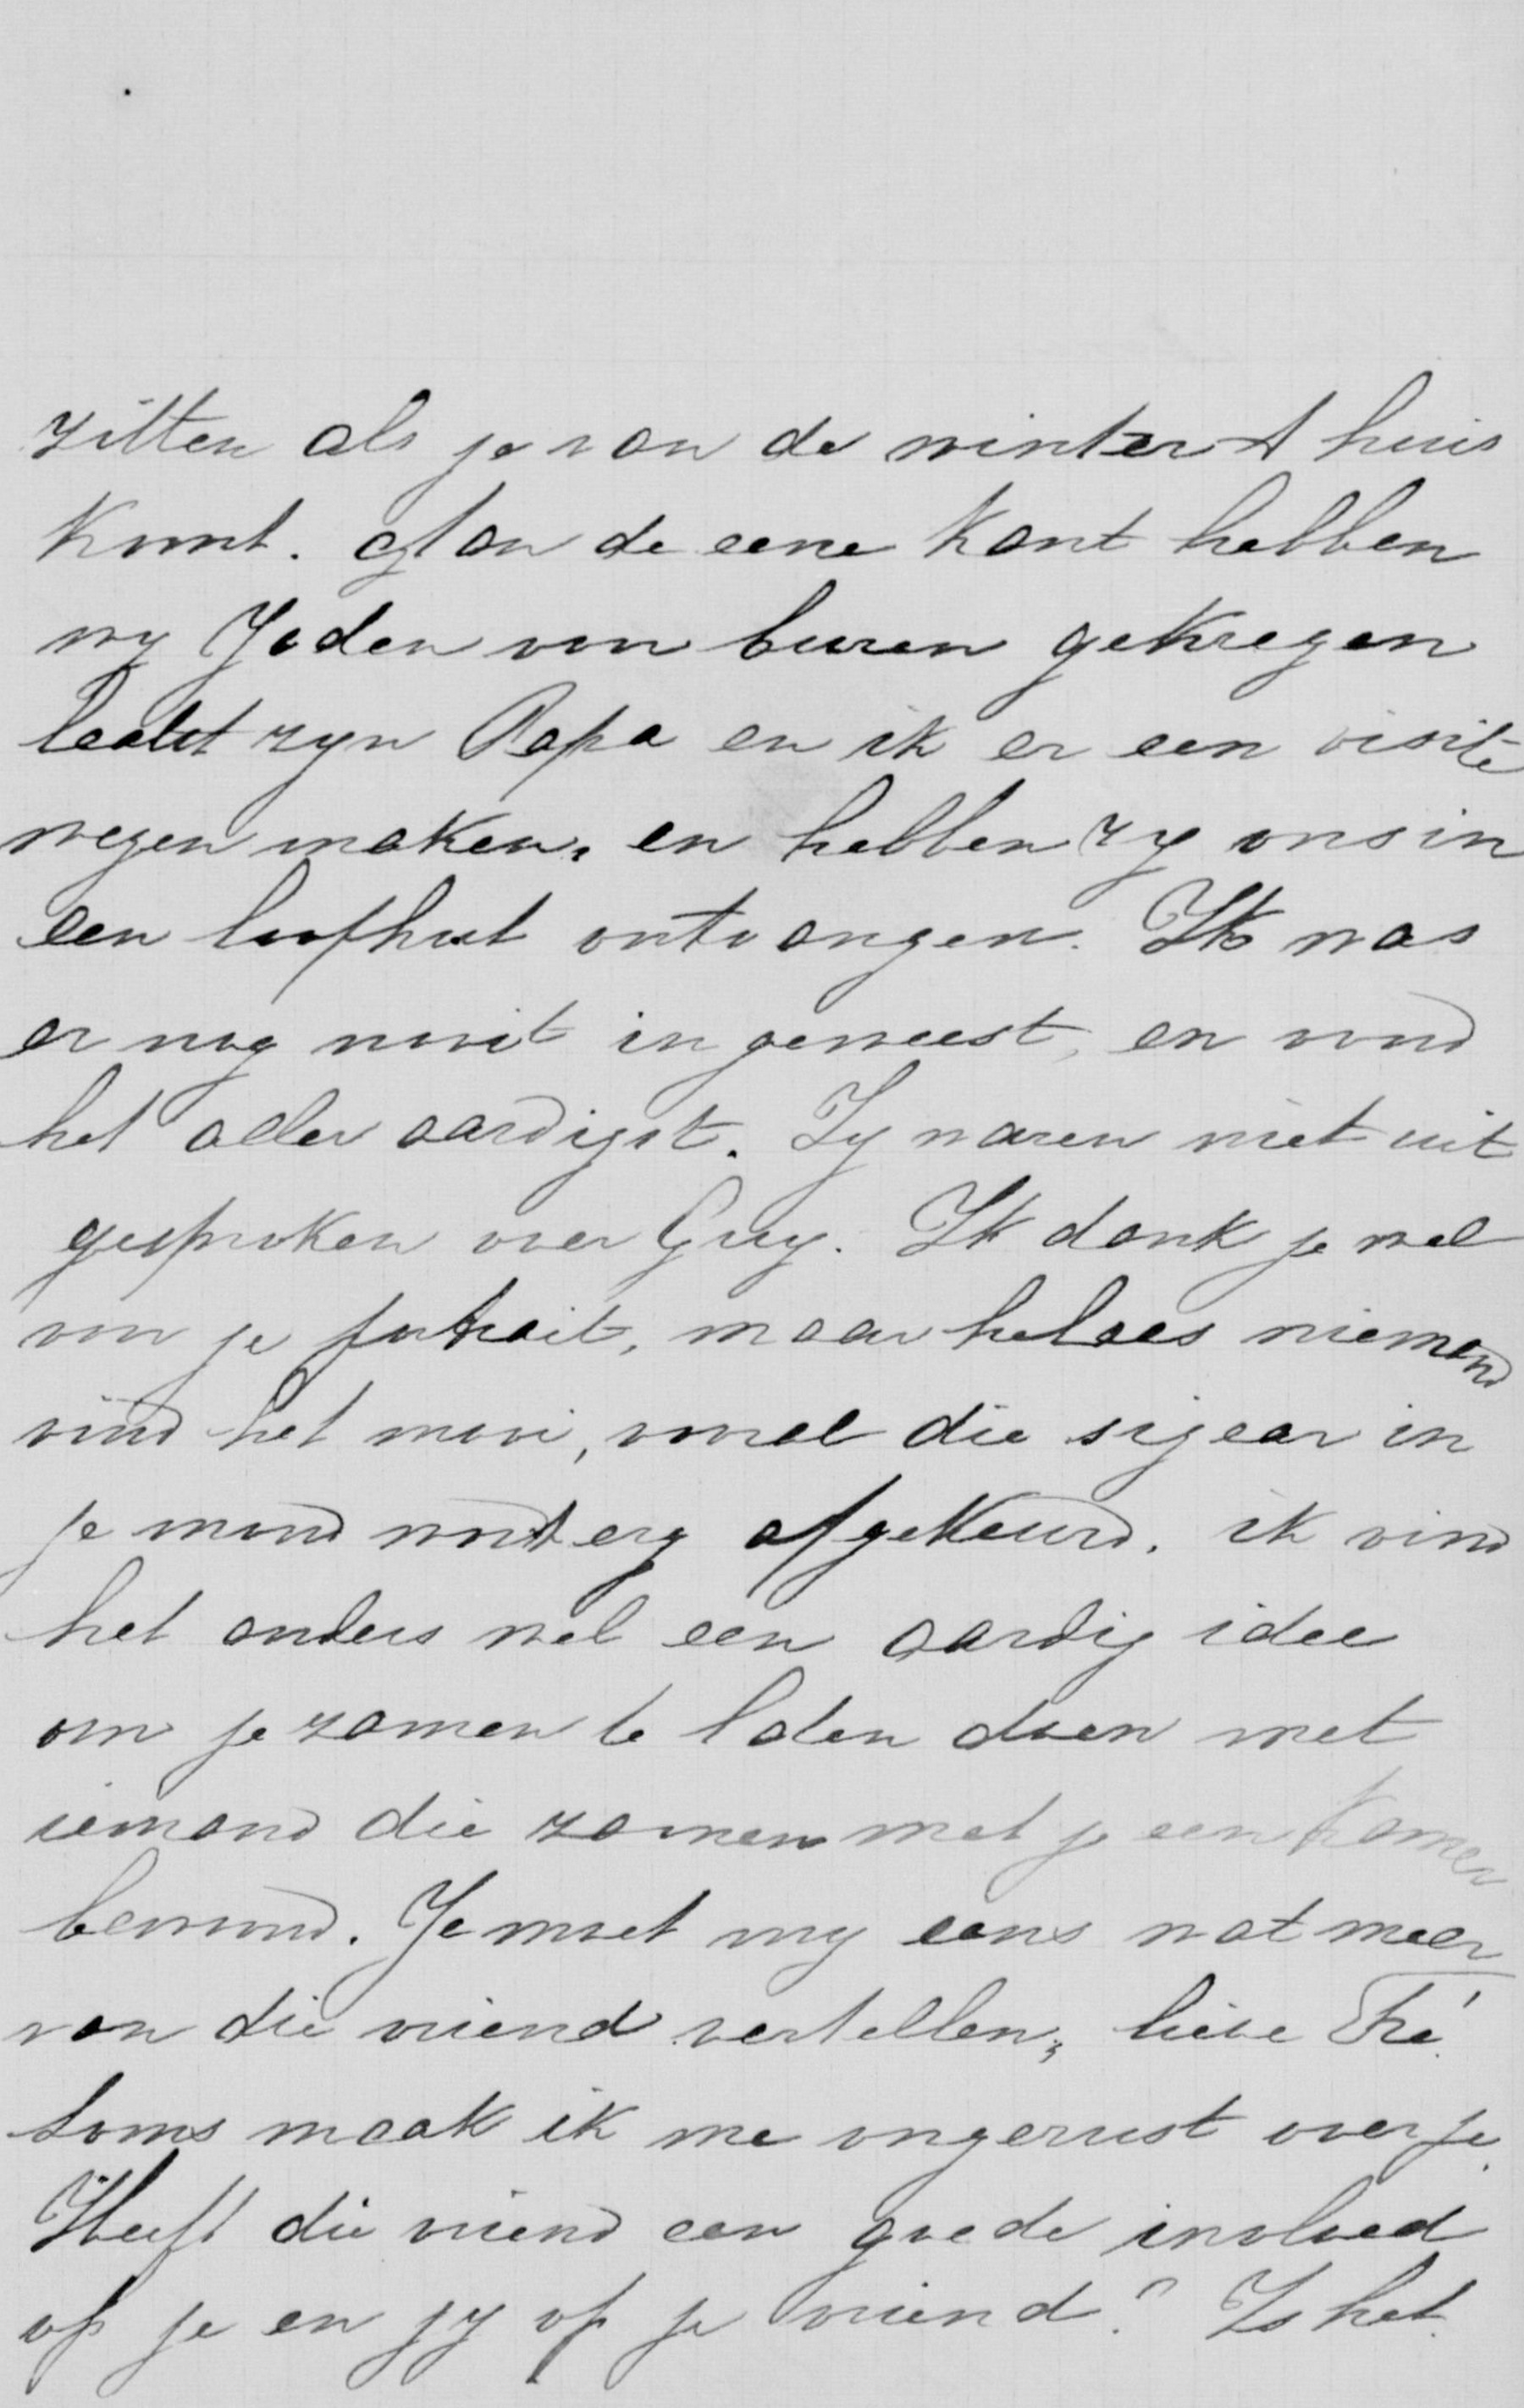 zitten als je van de winter t huis
komt. Aan de eene kant hebben
wy Joden van buren gekregen
laatst zyn Papa en ik er een visite
wezen maken, en hebben zy ons in
een loofhut ontvangen. Ik was
er nog nooit in geweest, en vond
het aller aardigst. Zy waren niet uit
gesproken over Guy. Ik dank je wel
voor je portrait, maar helaas niemand
vind het mooi, vooral die sigaar in
je mond wordt erg afgekeurd. ik vind
het anders wel een aardig idee
om je zamen te laten doen met
iemand die zamen met je een kamer
bewoond. Je moet my eens wat meer
van die vriend vertellen, lieve Thé!
Soms maak ik me ongerust over je.
Heeft die vriend een goede invloed
op je en jy op je vriend? Is het